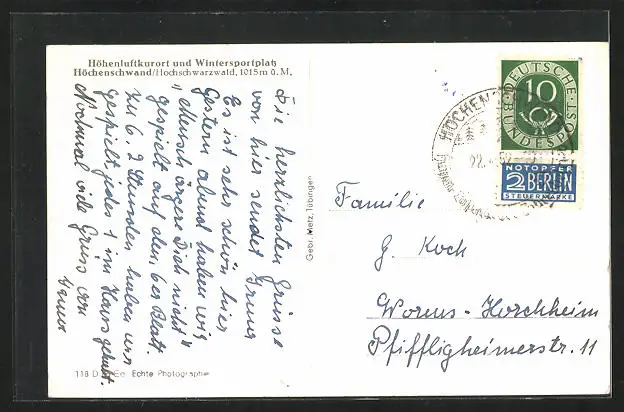 Höhenluftkurort und Wintersportplatz
Höchenschwand/Hochschwarzwald, 1015m ü. M.
Die herzlichsten Grüsse
von hier sendet
Es ist sehr schön hier
Gestern abend haben wir
"Mensch ärgere Dich nicht"
gespielt auf dem 6er Blatt.
zu 6. 2 Stunden haben wir
gespielt jedes 1 im Haus gehabt.
Nochmal viele Grüsse von
118 Echte Photographie
Gebr. Metz, Tübingen
DEUTSCHE
10
BUNDESPOST
NOTOPFER
2 BERLIN
STEUERMARKE
HÖCHENSCHWAND
Familie
G. Koch
Worms-Horchheim
Pfiffligheimerstr. 11